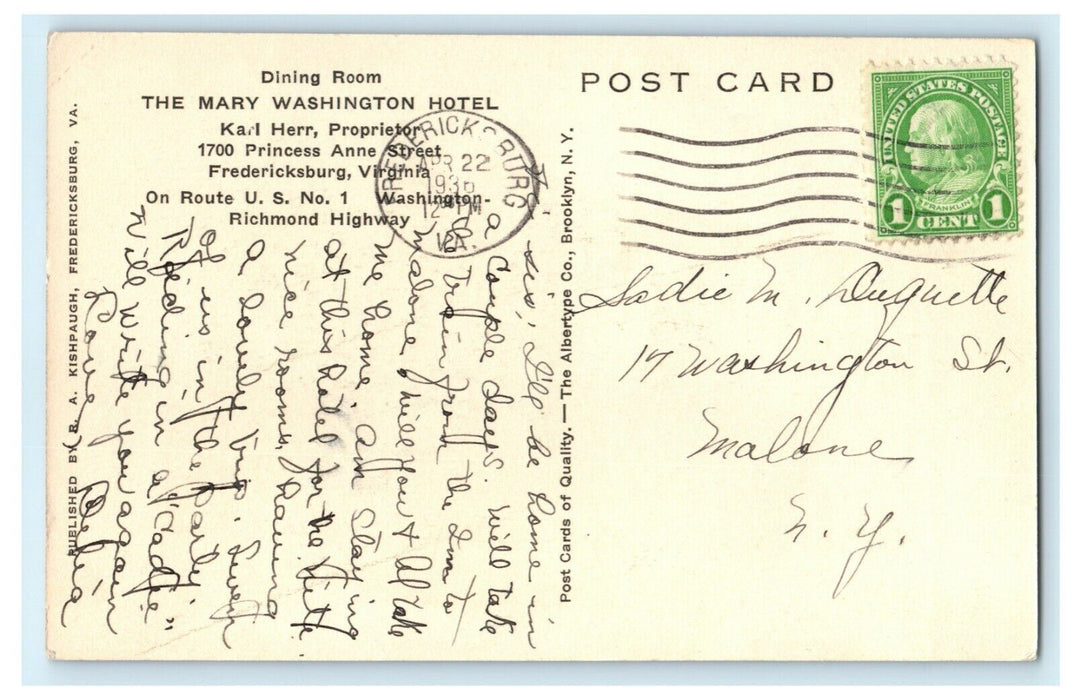 Dining Room
THE MARY WASHINGTON HOTEL
Karl Herr, Proprietor
1700 Princess Anne Street
Fredericksburg, Virginia
On Route U. S. No. 1 Washington-
Richmond Highway
POST CARD
UNITED STATES POSTAGE
FRANKLIN
1 CENT 1
FREDERICKSBURG
APR 22
1936
12 PM
VA.
PUBLISHED BY R. A. KISHPAUGH, FREDERICKSBURG, VA.
Post Cards of Quality. — The Albertype Co., Brooklyn, N. Y.
Sis; I'll be home in
a Couple days. Will take
Train from the to
Malone, Will you + Al take
me home, am Staying
at this Hotel for the nite
nice rooms, having
a lovely trip. Seven
of us in the party.
Riding in a "Caddie"
Will write you again
Love Delia
Sadie M. Duquette
17 Washington St.
Malone
N. Y.